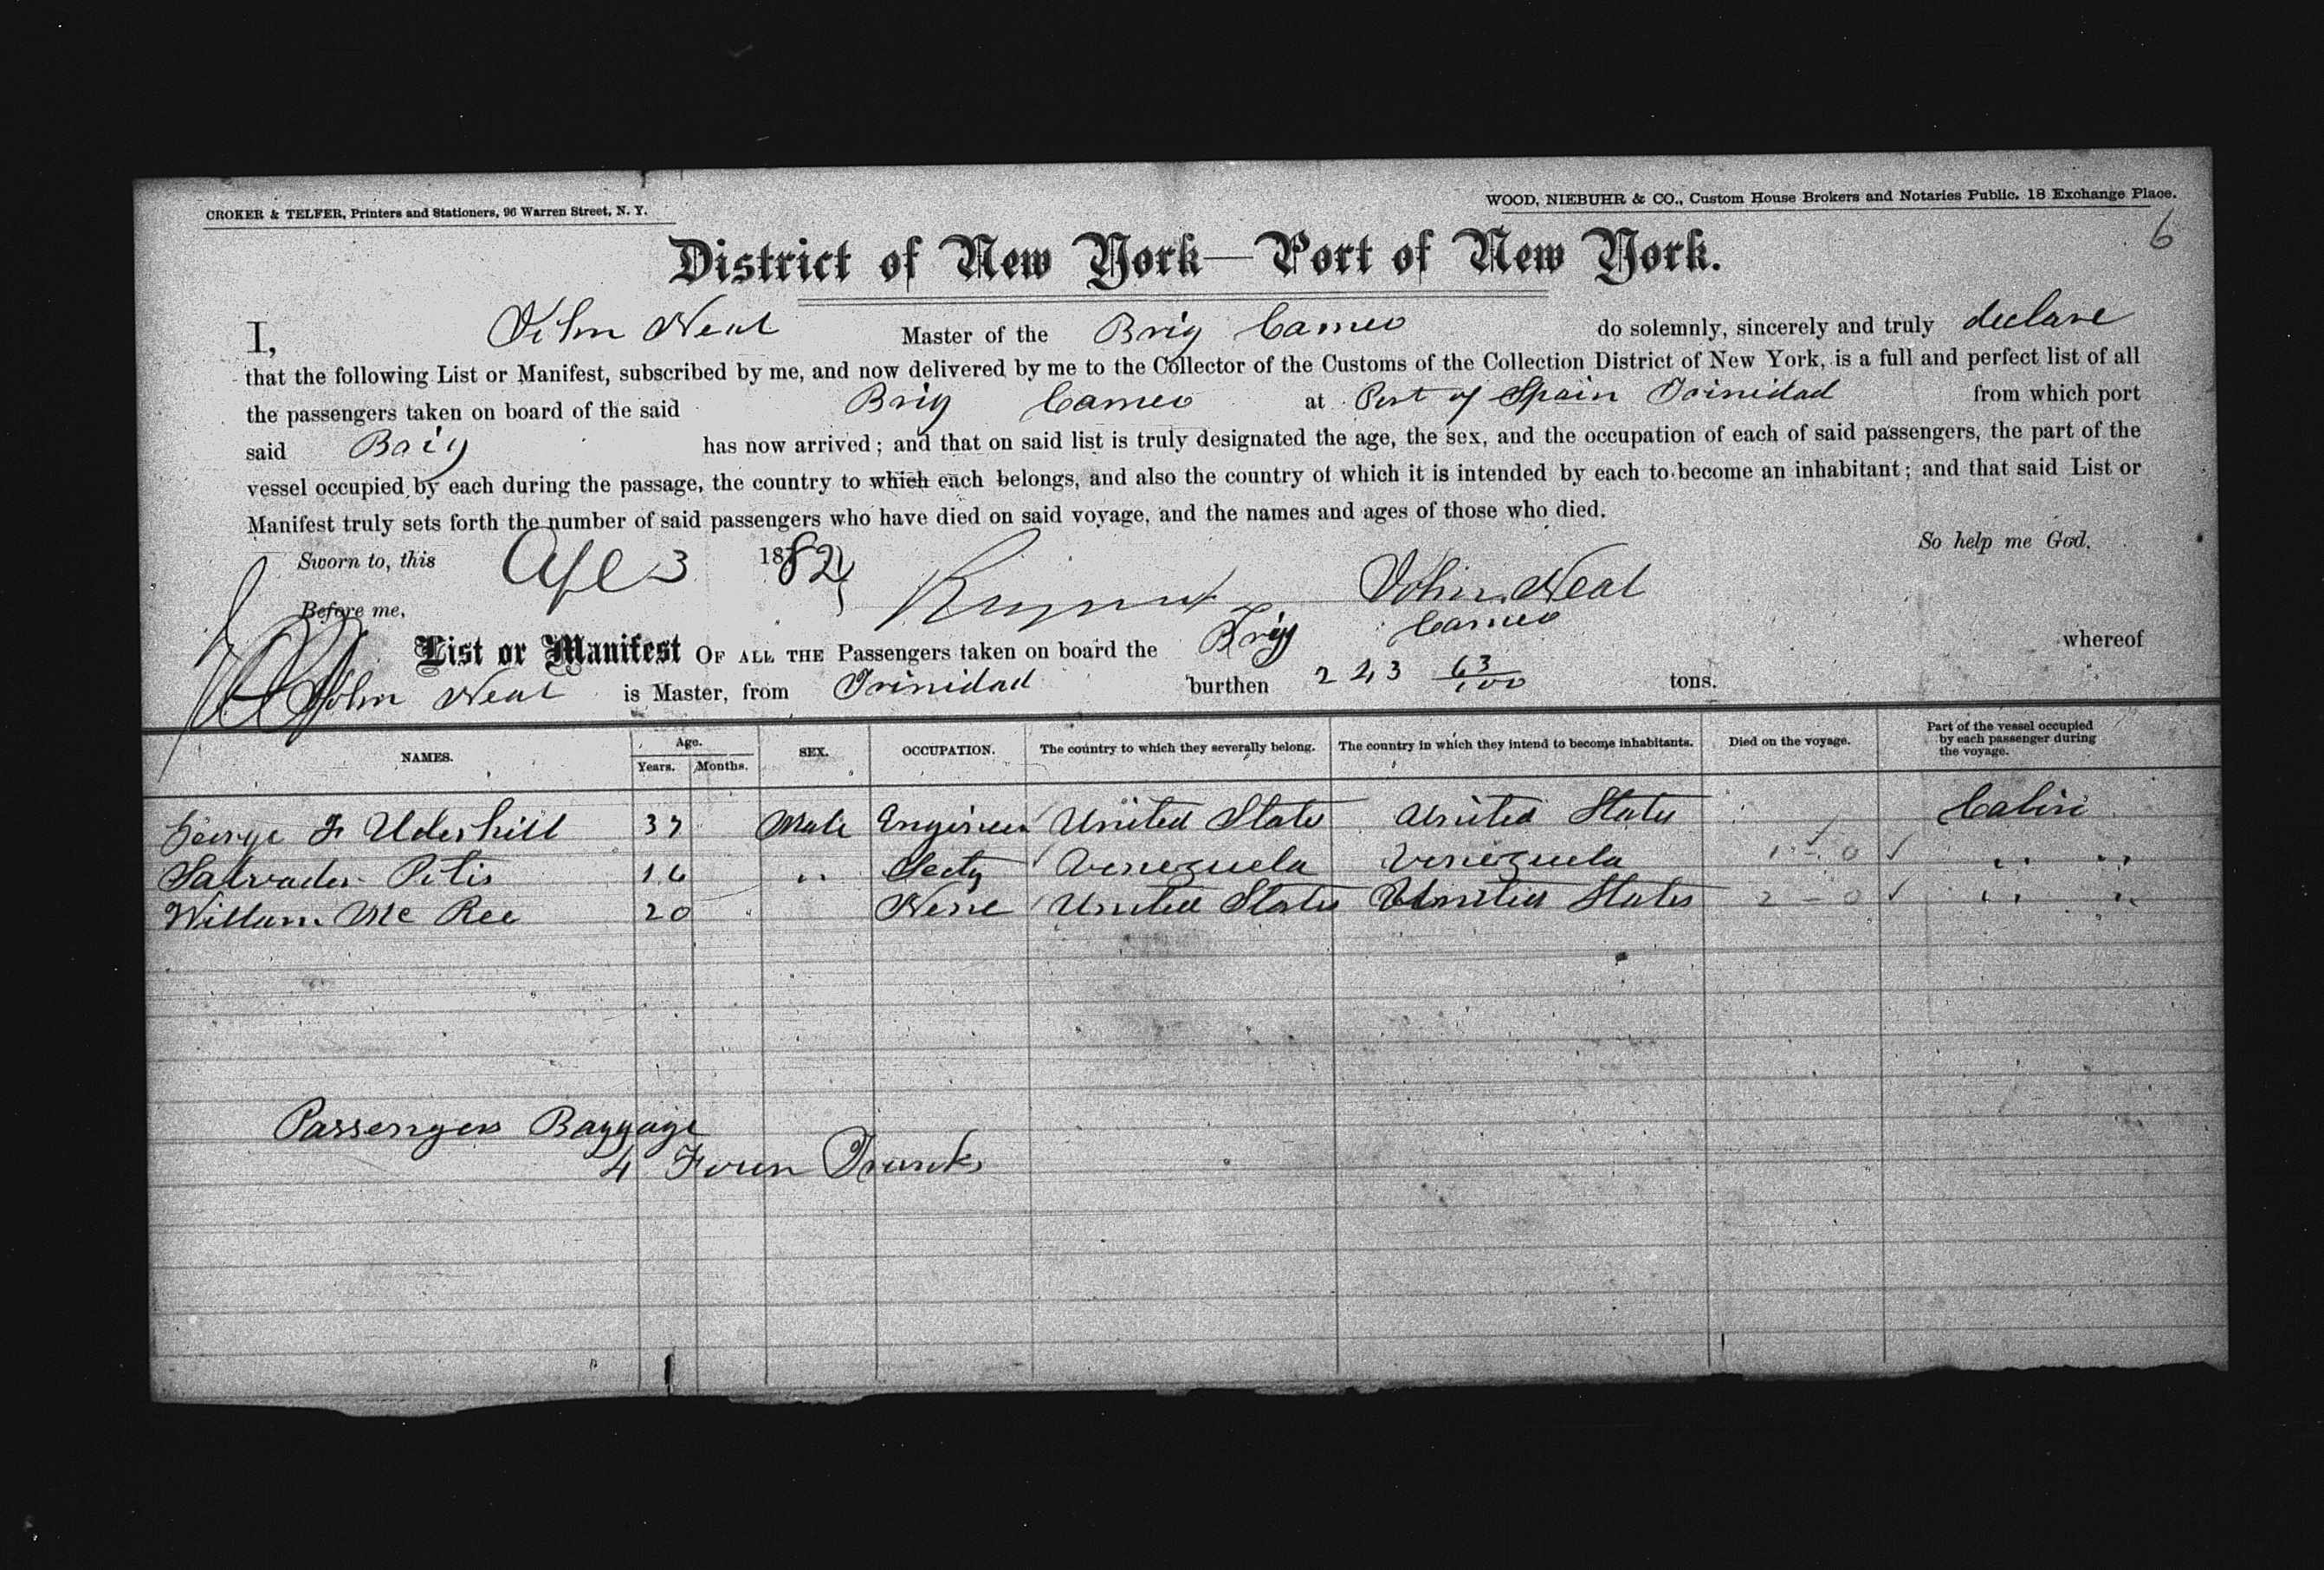 CROKER & TELFER, Printers and Stationers, 96 Warren Street, N. Y.
WOOD, NIEBUHR & CO., Custom House Brokers and Notaries Public, 18 Exchange Place.
6
District of New York—Port of New York.
I, John Neal Master of the Brig Cameo do solemnly, sincerely and truly declare
that the following List or Manifest, subscribed by me, and now delivered by me to the Collector of the Customs of the Collection District of New York, is a full and perfect list of all
the passengers taken on board of the said Brig Cameo at Port of Spain Trinidad from which port
said Brig has now arrived; and that on said list is truly designated the age, the sex, and the occupation of each of said passengers, the part of the
vessel occupied by each during the passage, the country to which each belongs, and also the country of which it is intended by each to become an inhabitant; and that said List or
Manifest truly sets forth the number of said passengers who have died on said voyage, and the names and ages of those who died.
So help me God.
Sworn to, this Apl 3 1882
John Neal
Before me,
List or Manifest OF ALL THE Passengers taken on board the Brig Cameo whereof
John Neal is Master, from Trinidad burthen 243 63/100 tons.
NAMES. Age. Years. Months. SEX. OCCUPATION. The country to which they severally belong. The country in which they intend to become inhabitants. Died on the voyage. Part of the vessel occupied by each passenger during the voyage.
George F Uderhill 37 Male Engineer United States United States Cabin
Salvador 16 " Venezuela Venezuela 1 - 0 ✓ " "
William Mc Ree 20 United States United States 2 - 0 ✓ " "
Passengers Baggage
4 Four Trunks